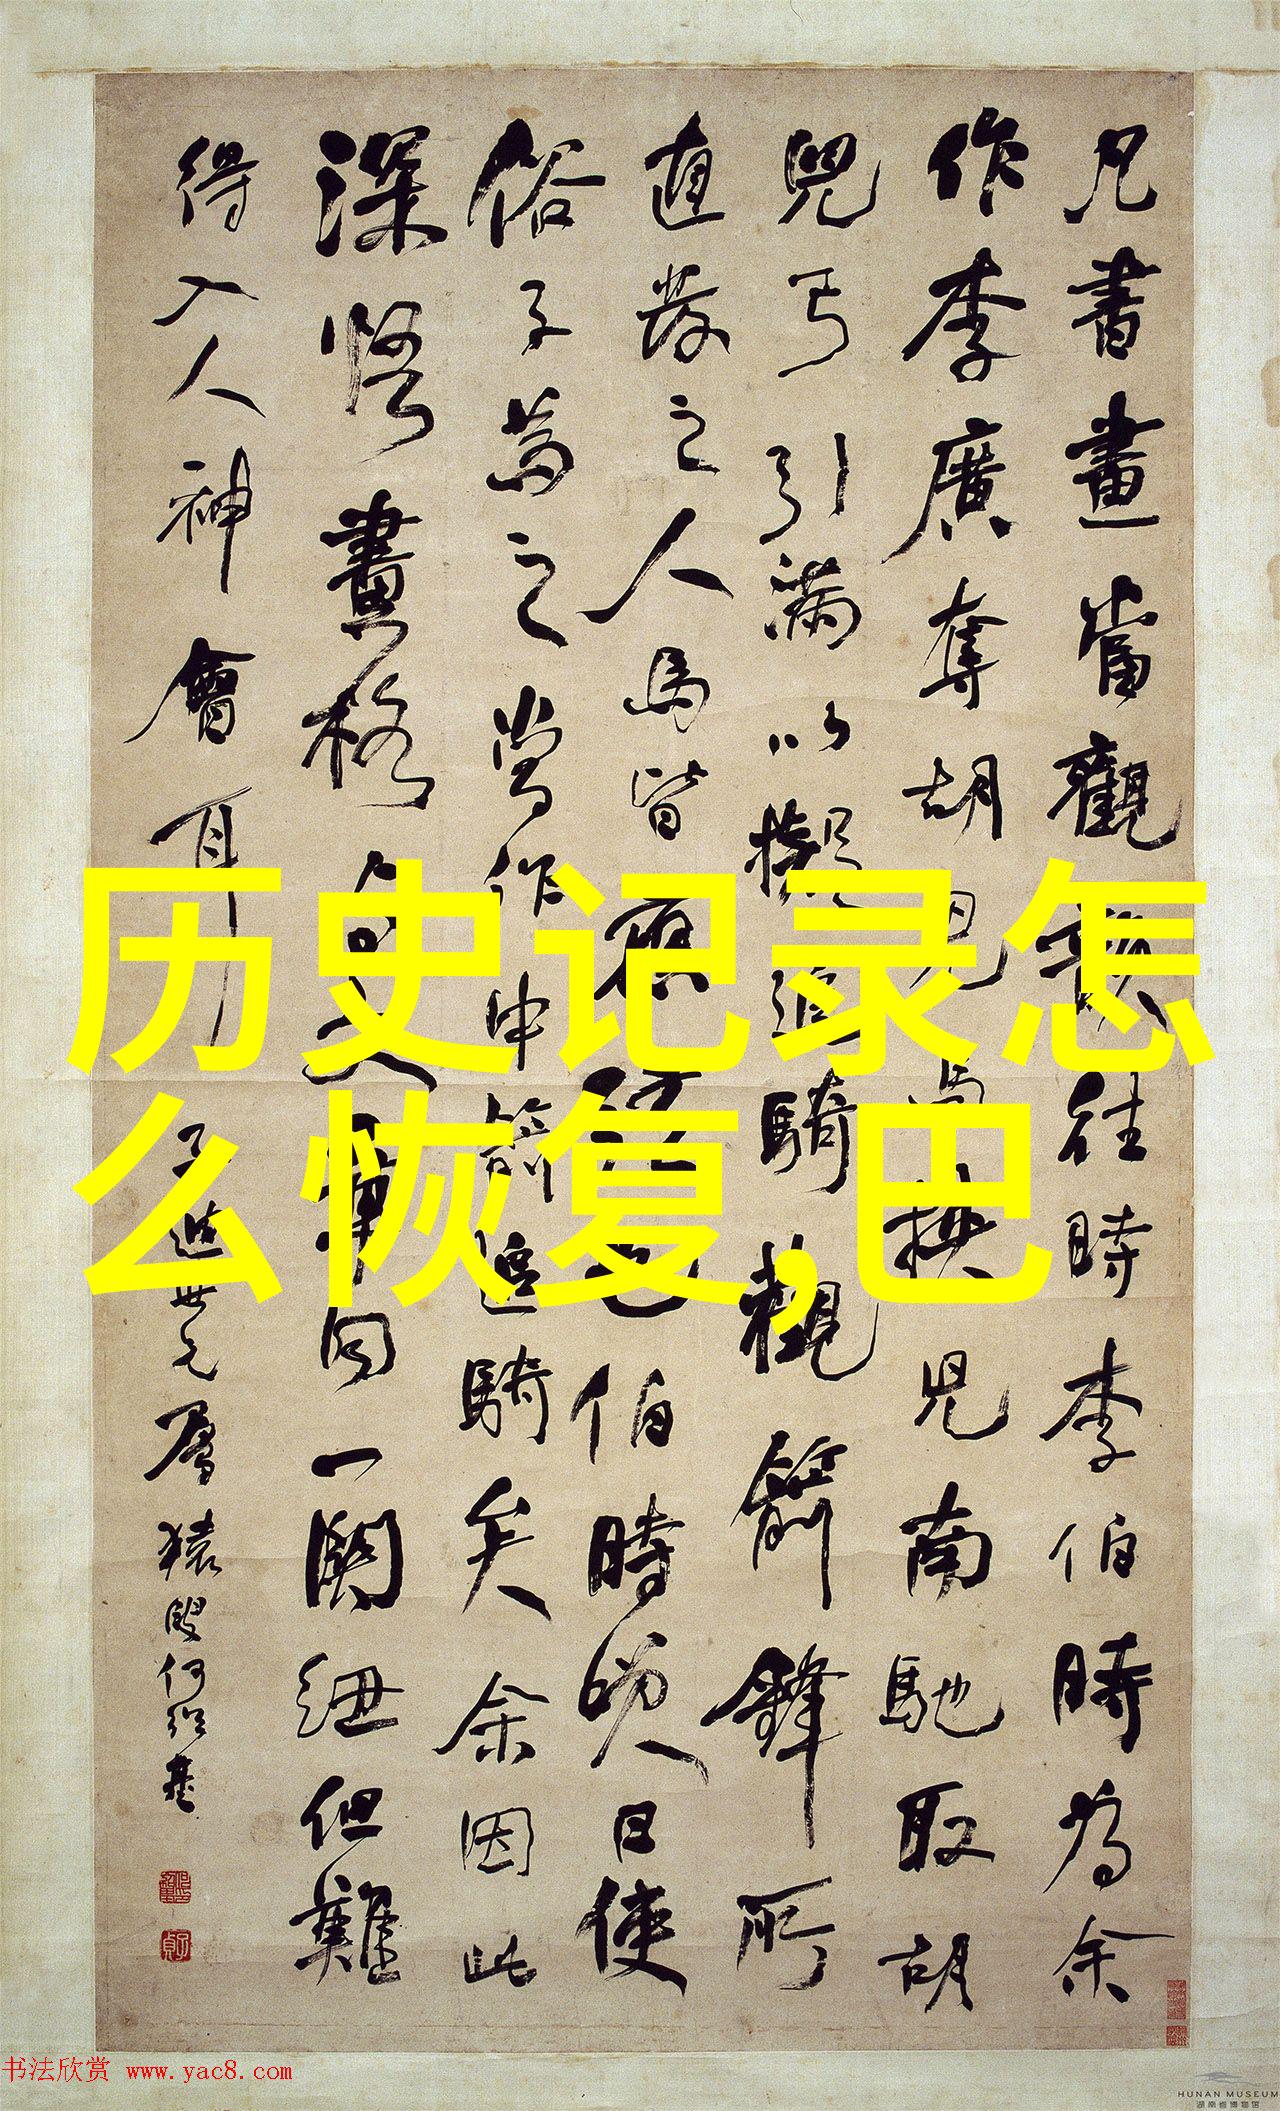 凡書畫當觀韻往時李伯時為余
作李廣奪胡兒馬挾兒南馳取胡
兒弓引滿以擬追騎觀箭鋒所
直發之人馬皆應弦也伯時笑曰使
俗子為之當作中箭追騎矣余因此
深悟畫格與文章同一關紐但難
得入人神會耳
子迪世兄屬 猿叟何紹基
历史记录怎
么恢复,巴
书法欣赏 www.yac8.com
HUNAN MUSEUM
湖南省博物馆